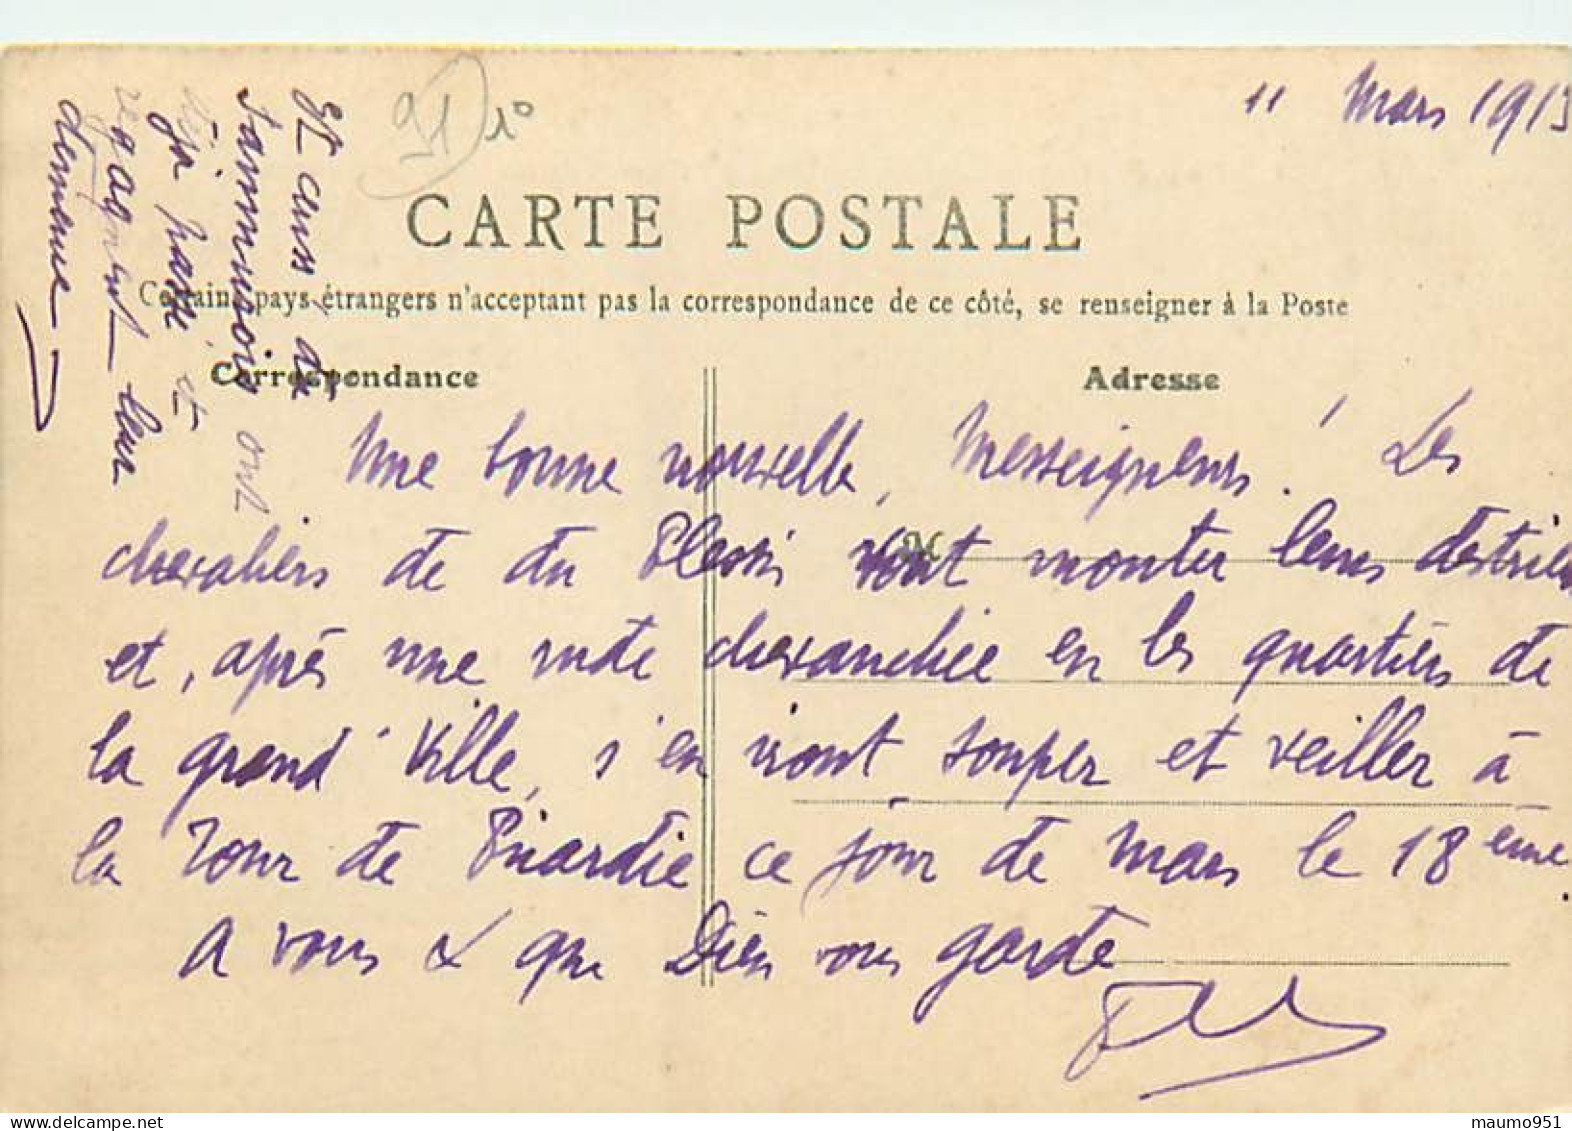 11 Mars 1913
91 1°
CARTE POSTALE
Certains pays étrangers n'acceptant pas la correspondance de ce côté, se renseigner à la Poste
Correspondance
Adresse
M
Une bonne nouvelle, Messeigneurs! Les
chevaliers de du Plessis vont monter leurs destriers
et, après une rude chevauchée en les quartiers de
la grand' Ville, s'en iront souper et veiller à
la Tour de Picardie ce jour de mars le 18ème.
A vous & que Dieu vous garde
Et ceux de
ont
déjà passé et
regagnent leur
demeure
maumo951